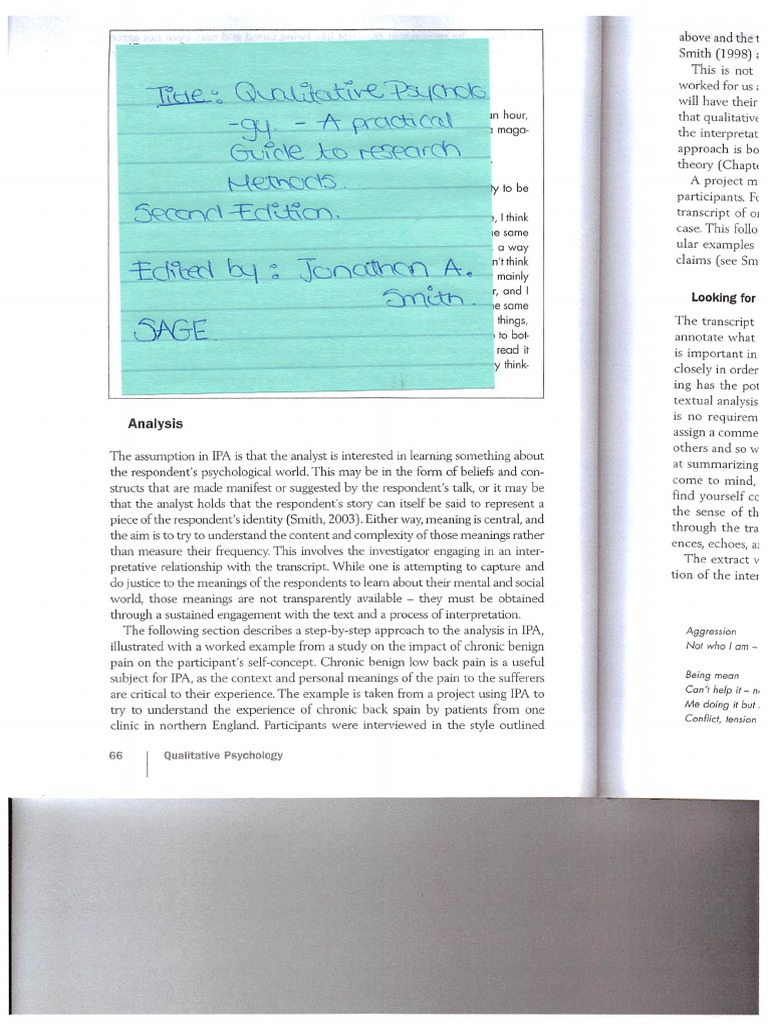 Title: Qualitative Psycholo
-gy. - A practical
Guide to research
Methods.
Second Edition.
Edited by: Jonathan A.
Smith.
SAGE
an hour,
maga-
ty to be
, I think
e same
a way
n't think
mainly
r, and I
e same
things,
to bot-
read it
y think-
Analysis
The assumption in IPA is that the analyst is interested in learning something about
the respondent's psychological world. This may be in the form of beliefs and con-
structs that are made manifest or suggested by the respondent's talk, or it may be
that the analyst holds that the respondent's story can itself be said to represent a
piece of the respondent's identity (Smith, 2003). Either way, meaning is central, and
the aim is to try to understand the content and complexity of those meanings rather
than measure their frequency. This involves the investigator engaging in an inter-
pretative relationship with the transcript. While one is attempting to capture and
do justice to the meanings of the respondents to learn about their mental and social
world, those meanings are not transparently available – they must be obtained
through a sustained engagement with the text and a process of interpretation.
The following section describes a step-by-step approach to the analysis in IPA,
illustrated with a worked example from a study on the impact of chronic benign
pain on the participant's self-concept. Chronic benign low back pain is a useful
subject for IPA, as the context and personal meanings of the pain to the sufferers
are critical to their experience. The example is taken from a project using IPA to
try to understand the experience of chronic back spain by patients from one
clinic in northern England. Participants were interviewed in the style outlined
66 Qualitative Psychology
above and the t
Smith (1998)
This is not
worked for us
will have their
that qualitative
the interpretat
approach is bo
theory (Chapte
A project m
participants. Fo
transcript of o
case. This follo
ular examples
claims (see Sm
Looking for
The transcript
annotate what
is important in
closely in order
ing has the pot
textual analysis
is no requirem
assign a comme
others and so w
at summarizing
come to mind,
find yourself co
the sense of th
through the tra
ences, echoes, a
The extract w
tion of the inter
Aggression
Not who I am –
Being mean
Can't help it – n
Me doing it but
Conflict, tension